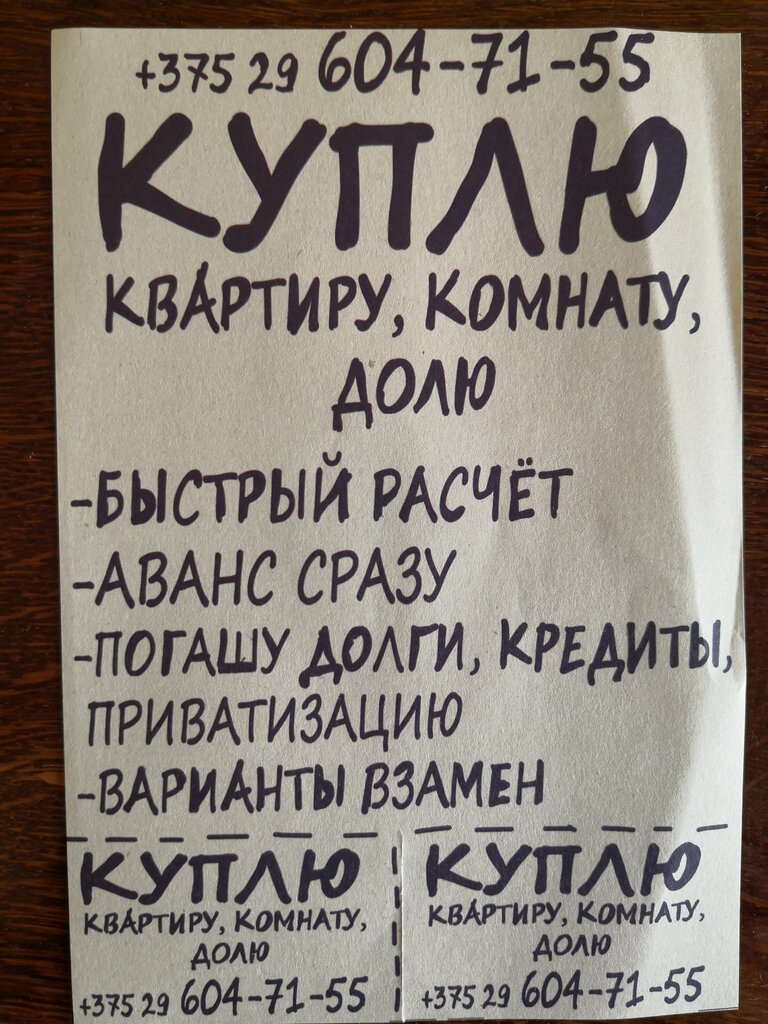 +375 29 604-71-55
КУПЛЮ
КВАРТИРУ, КОМНАТУ,
ДОЛЮ
-БЫСТРЫЙ РАСЧЁТ
-АВАНС СРАЗУ
-ПОГАШУ ДОЛГИ, КРЕДИТЫ,
ПРИВАТИЗАЦИЮ
-ВАРИАНТЫ ВЗАМЕН
КУПЛЮ
КВАРТИРУ, КОМНАТУ,
ДОЛЮ
+375 29 604-71-55
КУПЛЮ
КВАРТИРУ, КОМНАТУ,
ДОЛЮ
+375 29 604-71-55